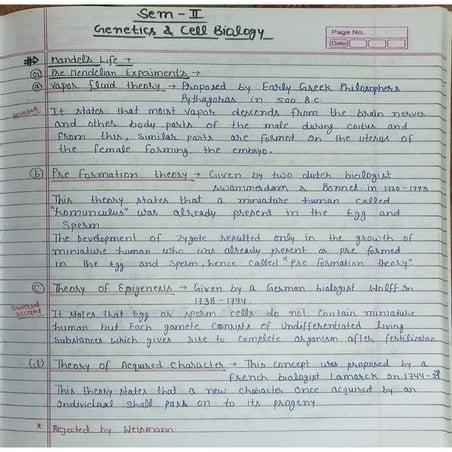 Sem - II
Genetics & Cell Biology
Page No.
Date
Mandels Life →
Pre Mendelian Experiments →
(a) Vapor fluid theory → Proposed by Early Greek Philosophers
Pythagoras in 500 B.C.
Rejected
It states that moist vapor descends from the brain nerves
and other body parts of the male during coitus and
From this, similar parts are formed in the uterus of
the female forming the embryo.
(b) Pre formation theory → Given by two dutch biologist
Swammerdam & Bonnet in 1720-1793
This theory states that a miniature human called
"homunculus" was already present in the Egg and
Sperm
The Development of Zygote resulted only in the growth of
miniature human who was already present or pre formed
in the Egg and Sperm, hence called "Pre formation theory"
(c) Theory of Epigenesis → Given by a German biologist Wolff in
1738-1794.
It states that Egg or sperm cells do not contain miniature
human but Each gamete consists of Undifferentiated living
Substances which gives rise to complete organism after fertilization
(d) Theory of Acquired Character → This concept was proposed by a
French biologist Lamarck in 1744-
This theory states that a new character once acquired by an
Individual shall pass on to its progeny
* Rejected by Weismann